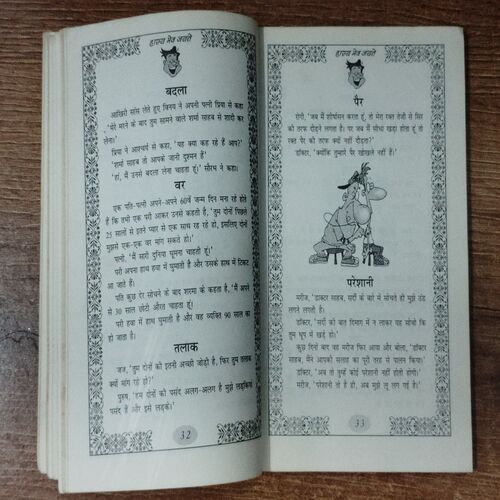 हास्य मेव जयते
बदला
आखिरी सांस लेते हुए विनय ने अपनी पत्नी प्रिया से कहा
'मेरे मरने के बाद तुम सामने वाले शर्मा साहब से शादी कर
लेना।'
प्रिया ने आश्चर्य से कहा, 'यह क्या कह रहे हैं आप?'
'शर्मा साहब तो आपको जानी दुश्मन हैं'
'हां, मैं उनसे बदला लेना चाहता हूं।' सौरभ ने कहा।
वर
एक पति-पत्नी अपने-अपने 60वें जन्म दिन मना रहे होते
हैं कि तभी एक परी आकर उनसे कहती है, 'तुम दोनों पिछले
25 सालों से इतने प्यार से एक साथ रह रहे हो, इसलिए दोनों
मुझसे एक-एक वर मांग सकते हो।'
पत्नी, 'मैं सारी दुनिया घूमना चाहती हूं।'
परी अपना हाथ हवा में घुमाती है और उसके हाथ में टिकट
आ जाते हैं।
पति कुछ देर सोचने के बाद शरमा के कहता है, 'मैं अपने
से 30 साल छोटी औरत चाहता हूं।'
परी हवा में हाथ घुमाती है और वह व्यक्ति 90 साल का
हो जाता है।
तलाक
जज, 'तुम दोनों की इतनी अच्छी जोड़ी है, फिर तुम तलाक
क्यों मांग रहे हो?'
पुरुष, 'हम दोनों की पसंद अलग-अलग है मुझे लड़कियां
पसंद हैं और इसे लड़के।'
32
हास्य मेव जयते
पैर
रोगी, 'जब मैं शीर्षासन करता हूं, तो मेरा रक्त तेजी से सिर
की तरफ दौड़ने लगता है। पर जब मैं सीधा खड़ा होता हूं तो
रक्त पैर की तरफ क्यों नहीं दौड़ता?'
डॉक्टर, 'क्योंकि तुम्हारे पैर खोखले नहीं हैं।'
परेशानी
मरीज, 'डाक्टर साहब, सर्दी के बारे में सोचते ही मुझे ठंड
लगने लगती है।
डॉक्टर, 'सर्दी की बात दिमाग में न लाकर यह सोचो कि
तुम धूप में खड़े हो।'
कुछ दिनों बाद वह मरीज फिर आया और बोला, 'डॉक्टर
साहब, मैंने आपकी सलाह का पूरी तरह से पालन किया।'
डॉक्टर, 'अब तो तुम्हें कोई परेशानी नहीं होती होगी।'
मरीज, 'परेशानी तो है ही, अब मुझे लू लग गई है।'
33